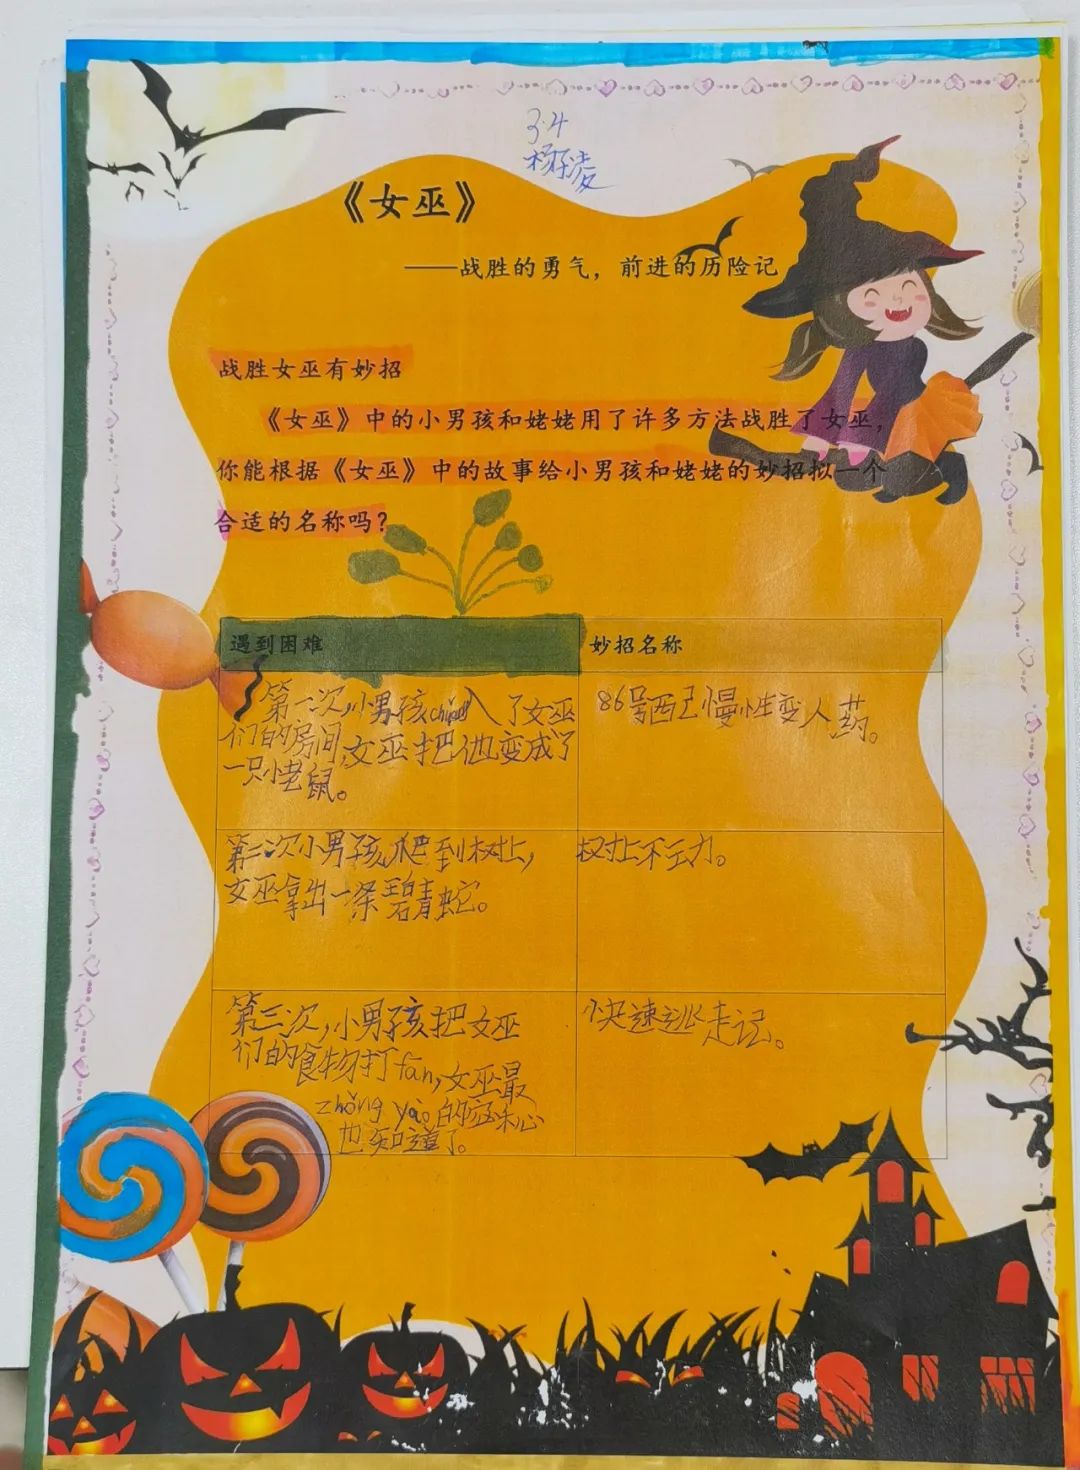 3.4
《女巫》
——战胜的勇气，前进的历险记
战胜女巫有妙招
《女巫》中的小男孩和姥姥用了许多方法战胜了女巫，
你能根据《女巫》中的故事给小男孩和姥姥的妙招拟一个
合适的名称吗？
遇到困难
妙招名称
第一次,小男孩 入了女巫
们的房间,女巫把他变成了
一只小老鼠。
86号配慢性变人药。
第二次小男孩爬到树上,
女巫拿出一条碧青蛇。
树上不主力。
第三次,小男孩把女巫
们的食物打fān,女巫最
zhòng yào的 心
也知道了。
快速逃走记。